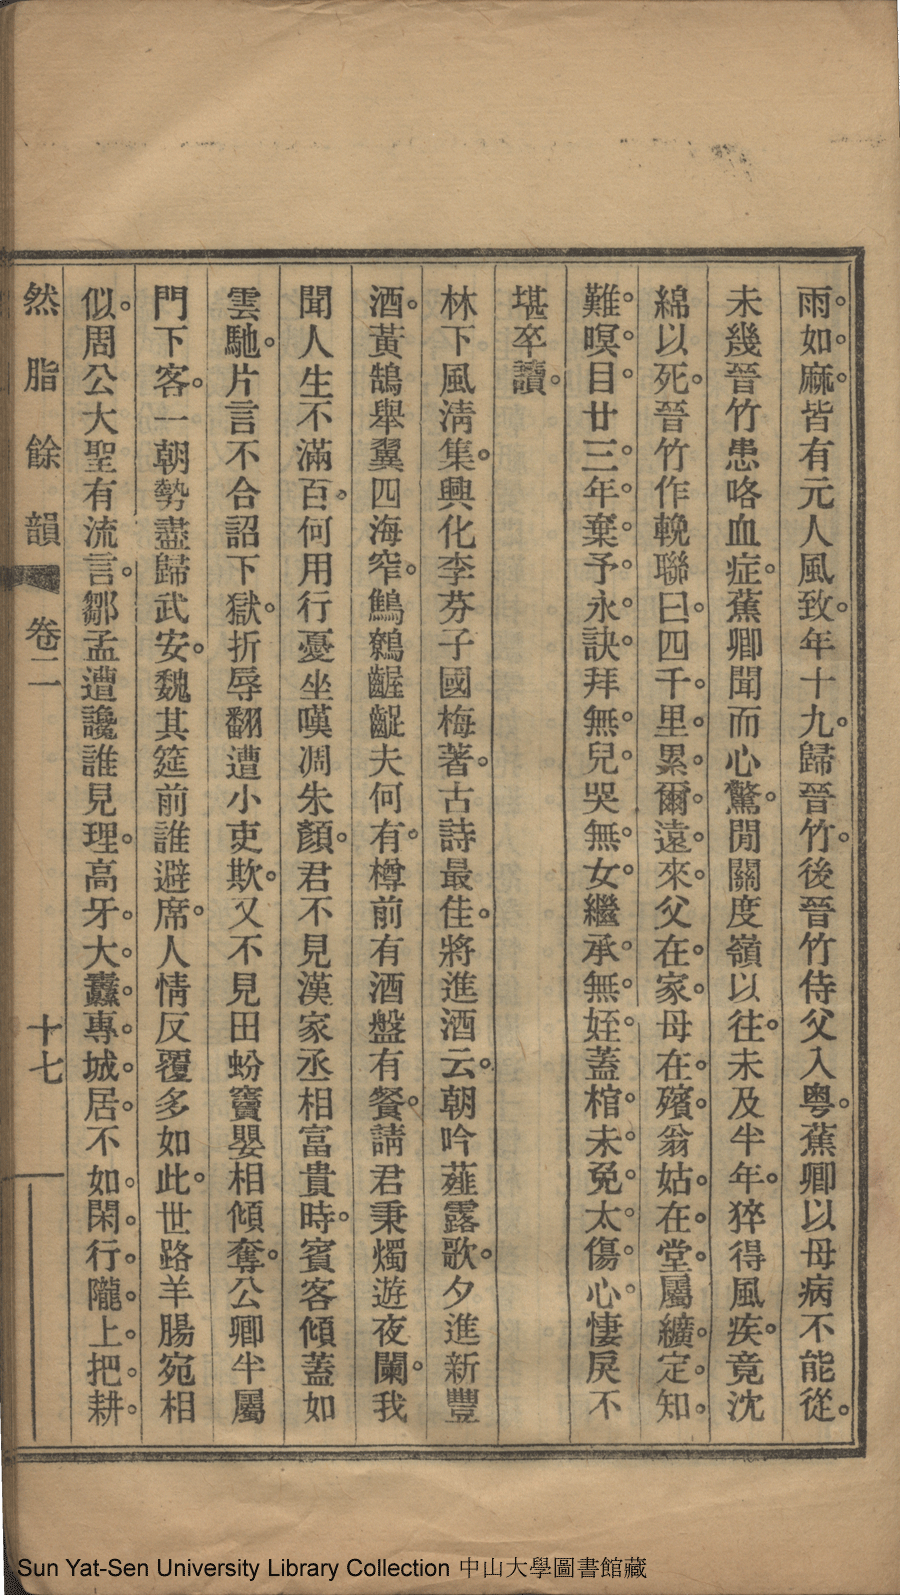 雨。如。麻。皆有元人風致。年十九。歸晉竹。後晉竹侍父入粵。蕉卿以母病不能從。
未幾晉竹患咯血症。蕉卿聞而心驚。閒關度嶺以往。未及半年。猝得風疾。竟沈
綿以死。晉竹作輓聯曰。四千。里。累。爾。遠。來。父在。家。母在。殯。翁姑。在。堂。屬纊。定。知。
難。暝。目。廿三。年。棄。予。永。訣。拜無。兒。哭無。女。繼承。無。姪。蓋棺。未。免。太。傷。心。悽戾不
堪卒讀。
林下風淸集。興化李芬子國梅著。古詩最佳。將進酒云。朝吟薤露歌。夕進新豐
酒。黃鵠舉翼四海窄。鷦鷯齷齪夫何有。樽前有酒盤有餐。請君秉燭遊夜闌。我
聞人生不滿百。何用行憂坐嘆凋朱顏。君不見漢家丞相富貴時。賓客傾蓋如
雲馳。片言不合詔下獄。折辱翻遭小吏欺。又不見田蚡竇嬰相傾奪。公卿半屬
門下客。一朝勢盡歸武安。魏其筵前誰避席。人情反覆多如此。世路羊腸宛相
似。周公大聖有流言。鄒孟遭讒誰見理。高牙。大。纛。專。城。居。不如。閑。行。隴。上。把。耕。
然脂餘韻 卷二 十七
Sun Yat-Sen University Library Collection 中山大學圖書館藏